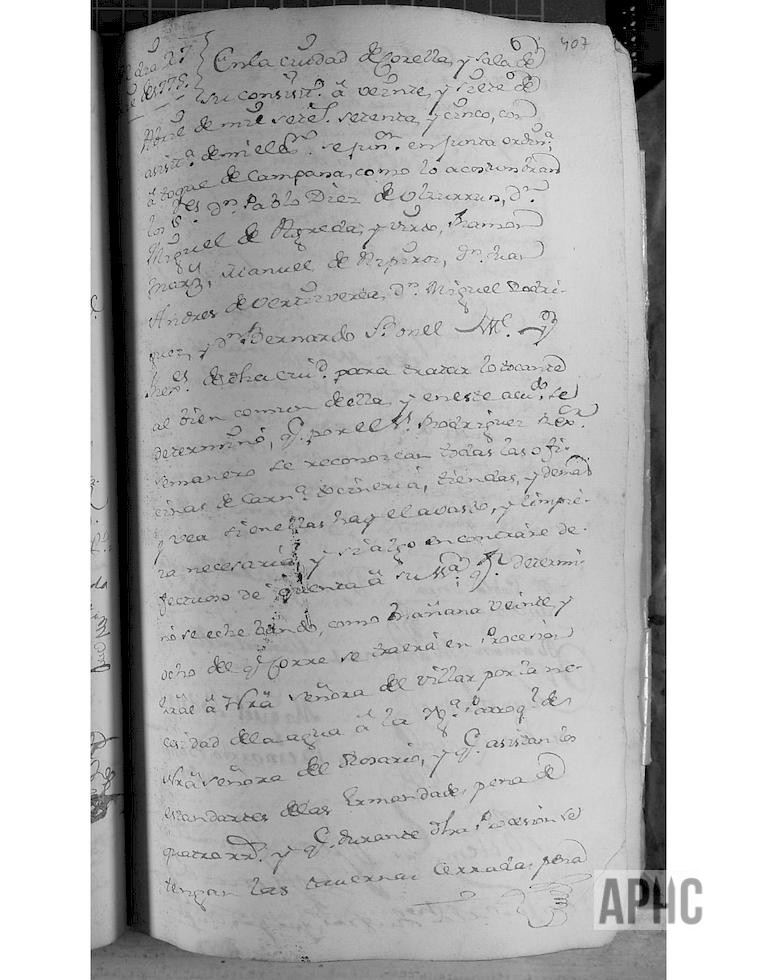 407
dia 27
de 1775.
En la ciudad de Corella, y Sala de
su consist.º â veinte, y siete de
Abril de mil setec.s setenta, y cinco, con
asist.ª de mi el ss.no se jun.n en Junta ordin.ª
â toque de Campana, como lo acostumbran
los S.res d.n Pablo Diez de Ulzurrun, d.n
Miguel de Agreda, y Virto, Ramon
Marz, Manuel de Arpiroz, d.n Juan
Andres de Vertiz verea, d.n Miguel Rodri-
guez, y d.n Bernardo Sanel Alc.e y
Rex.es de dha ciu.d para tratar lo tocante
al bien comun de ella, y en este acu.do se
determinó, q.e por el S.r Rodriguez Rex.or
semanero se reconozcan todas las ofi-
cinas de carn.ª tocineria, tiendas, y demas
y vea si en ellas hay el avasto, y limpie-
za necesaria, y si algo encontrare de-
fectuoso de quenta â su ss.ª y determi-
nó se eche bando, como mañana veinte y
ocho del q.e corre se traerá en Procesion
â Nrâ Señora del Villar por la ne-
cesidad de la agua â la Yg.ª Parroq.l de
Nrâ Señora del Rosario, y q.e asistan los
estandartes de las Ermandades pena de
quatro rr.s y q.e durante dha Procesion se
tengan las tavernas Cerradas pena
APHC